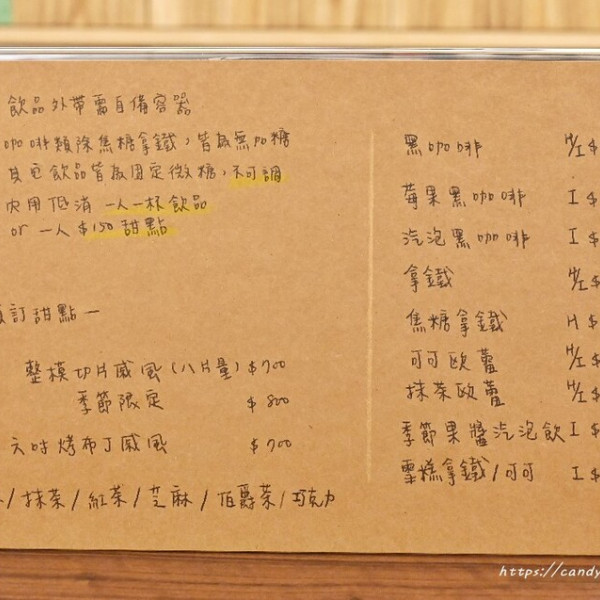 飲品外帶需自備容器
咖啡類除焦糖拿鐵,皆為無加糖
其它飲品皆為固定微糖,不可調
內用低消 一人一杯飲品
or 一人 $150 甜點
訂甜點一
整模切片戚風(八片量) $700
季節限定 $800
六吋烤布丁戚風 $700
/抹茶/紅茶/芝麻/伯爵茶/巧克力
黑咖啡 H/I $
莓果黑咖啡 I $
汽泡黑咖啡 I $
拿鐵 H/I $
焦糖拿鐵 H $
可可歐蕾 H/I $
抹茶歐蕾 H/I $
季節果醬汽泡飲 I $
雪糕拿鐵/可可 I $
https://candy